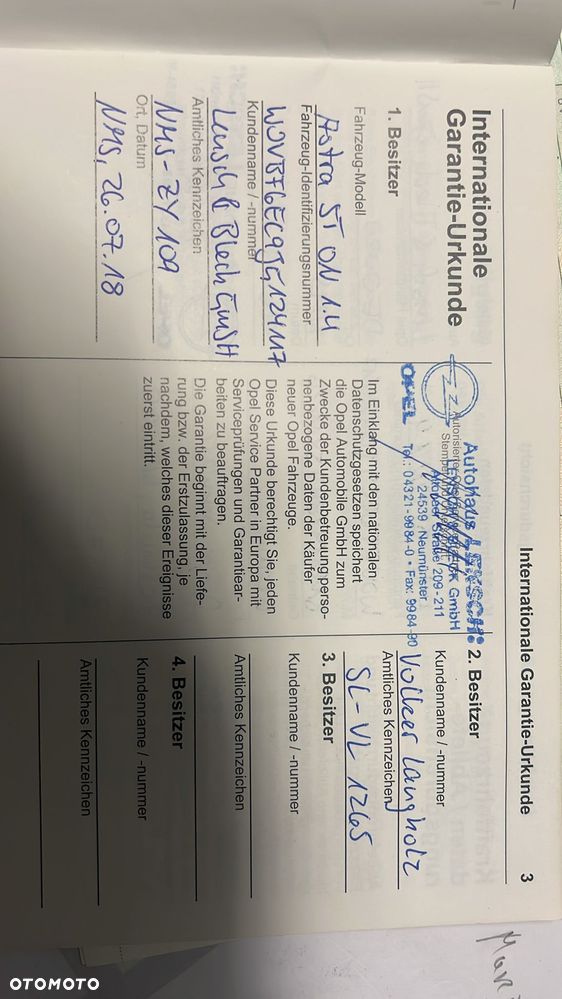 Internationale Garantie-Urkunde 3
Internationale
Garantie-Urkunde
1. Besitzer
Fahrzeug-Modell
Astra ST ON 1.4
Fahrzeug-Identifizierungsnummer
Kundenname / -nummer
Blech GmbH
Amtliches Kennzeichen
NMS-ZY 109
Ort, Datum
NMS, 26.07.18
Autohaus
GmbH
209-211
24539 Neumünster
Tel.: 04321-9984-0 • Fax: 9984-90
OPEL
Im Einklang mit den nationalen
Datenschutzgesetzen speichert
die Opel Automobile GmbH zum
Zwecke der Kundenbetreuung perso-
nenbezogene Daten der Käufer
neuer Opel Fahrzeuge.
Diese Urkunde berechtigt Sie, jeden
Opel Service Partner in Europa mit
Serviceprüfungen und Garantiear-
beiten zu beauftragen.
Die Garantie beginnt mit der Liefe-
rung bzw. der Erstzulassung, je
nachdem, welches dieser Ereignisse
zuerst eintritt.
2. Besitzer
Kundenname / -nummer
Volker Langholz
Amtliches Kennzeichen
SL-VL 1265
3. Besitzer
Kundenname / -nummer
Amtliches Kennzeichen
4. Besitzer
Kundenname / -nummer
Amtliches Kennzeichen
OTOMOTO